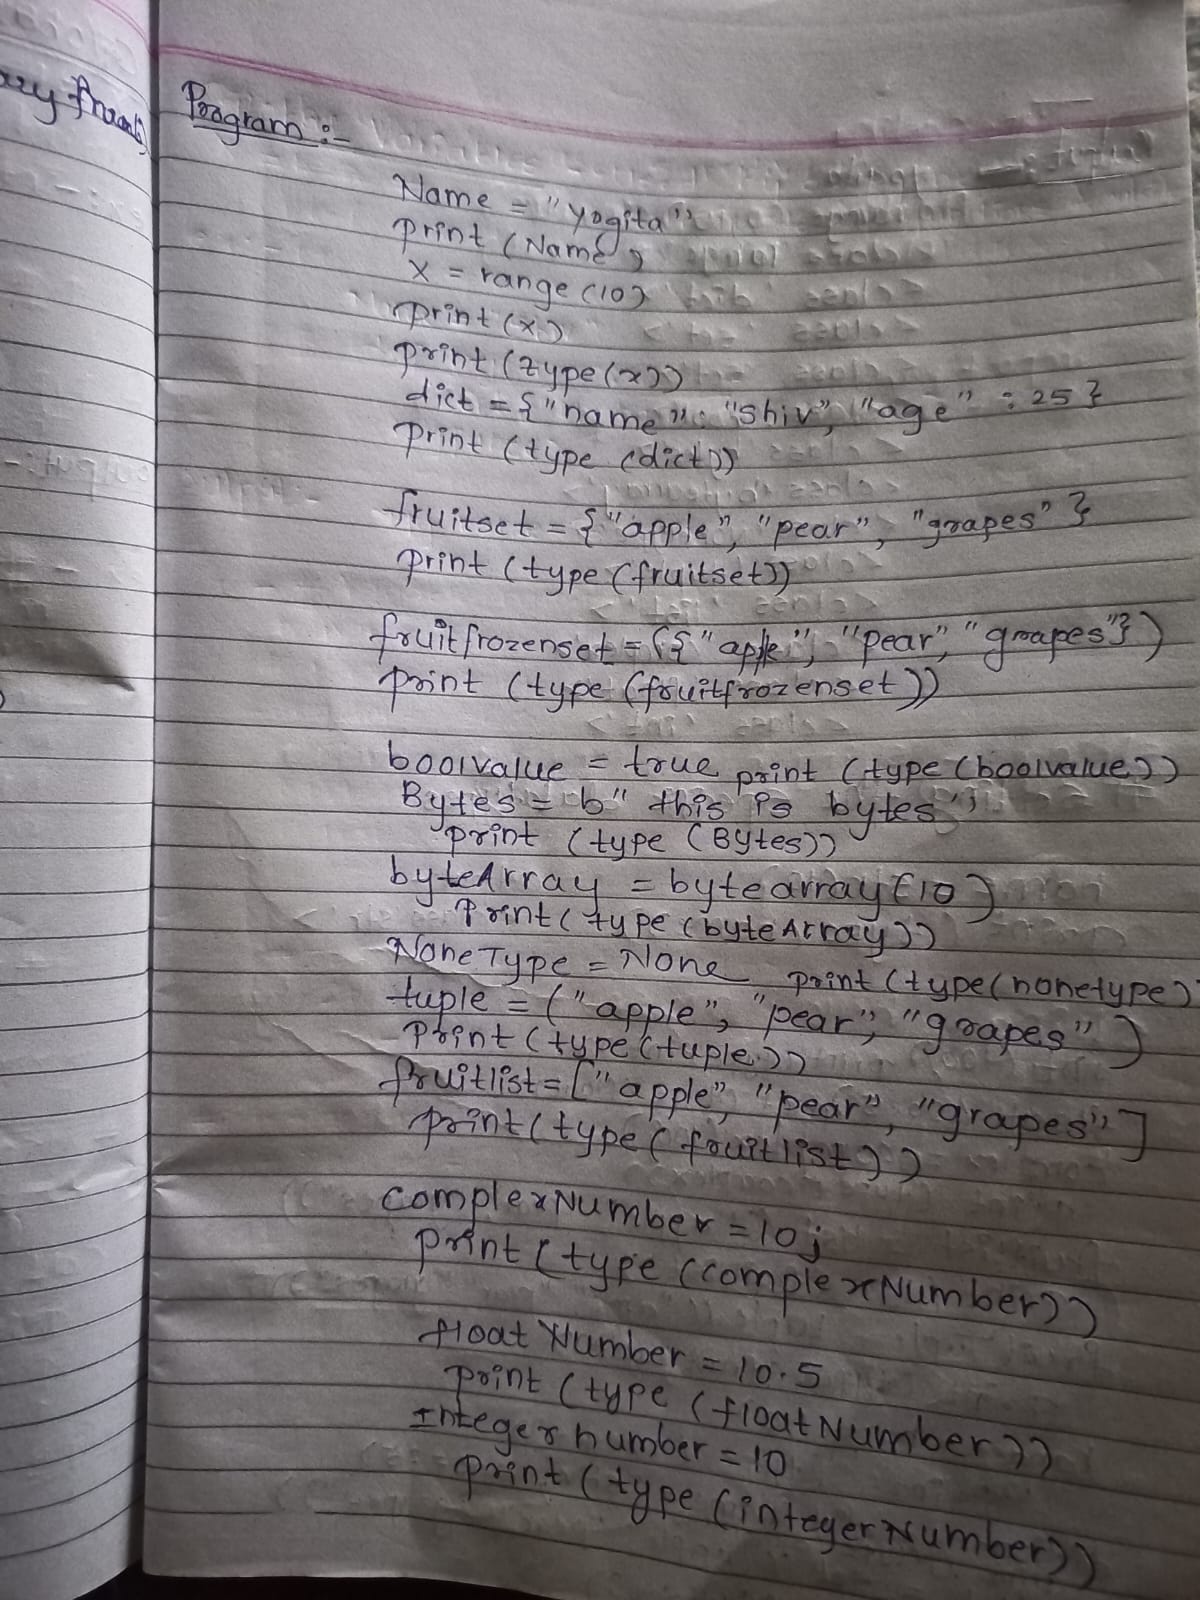 Program :-
Name = "Yogita"
print (Name)
x = range (10)
print (x)
print (type (x))
dict = {"name" : "Shiv", "age" : 25}
print (type (dict))
fruitset = {"apple", "pear", "grapes" }
print (type (fruitset))
fruitfrozenset = ({ "apple", "pear", "grapes"})
print (type (fruitfrozenset))
boolvalue = true print (type (boolvalue))
Bytes = b" this is bytes"
print (type (Bytes))
byteArray = bytearray (10)
Print (type (byteArray))
NoneType = None print (type (nonetype)
tuple = ("apple", "pear", "grapes" )
Print (type (tuple))
fruitlist = ["apple", "pear", "grapes"]
print (type ( fruitlist ))
complexNumber = 10j
print (type (complexNumber))
float Number = 10.5
print (type (floatNumber))
Integer number = 10
print (type (integerNumber))